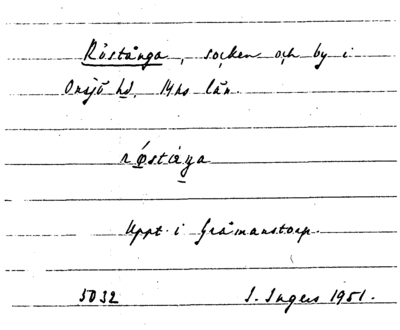 Röstånga, socken och by i
Onsjö hd, Mhs län.
røstæŋa
Uppt. i Gråmanstorp.
5032 I. Ingers 1951.